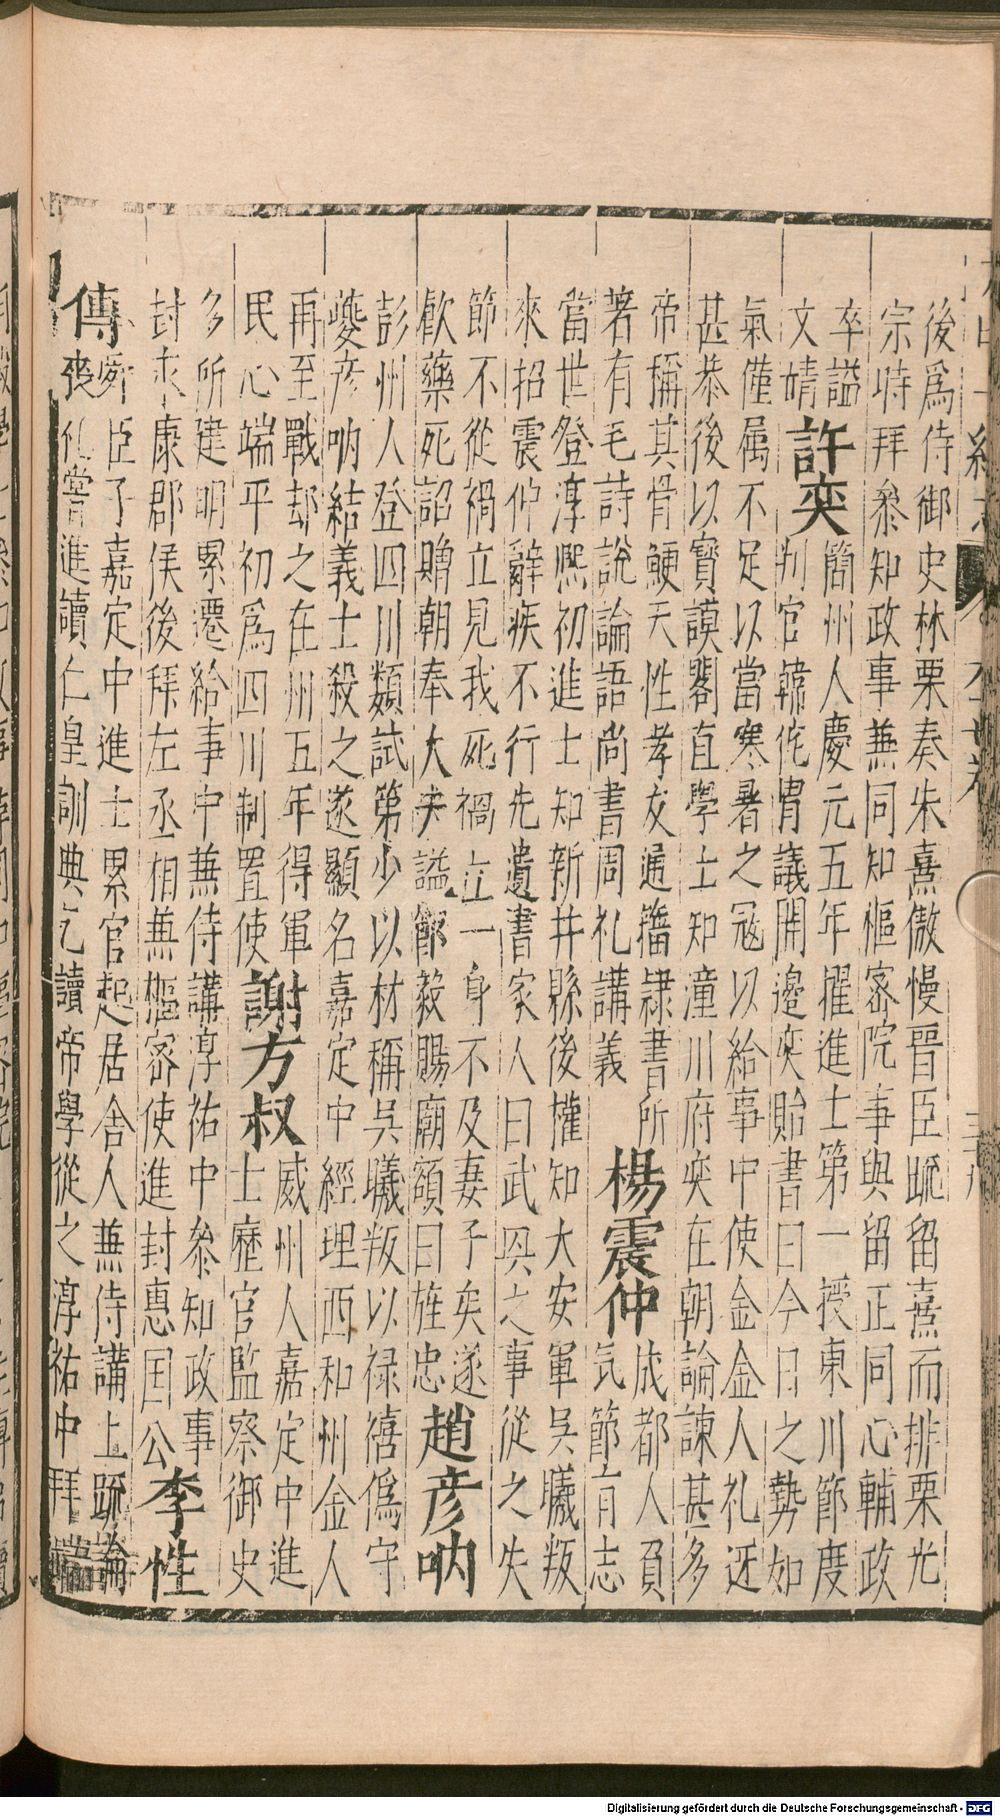 後爲侍御史林栗奏朱熹傲慢晉臣䟽留熹而排栗光
宗時拜叅知政事兼同知樞密院事與留正同心輔政
卒謚
文靖
許奕
簡州人慶元五年擢進士第一授東川節度
判官韓侂胄議開邊奕貽書曰今日之勢如
氣僅属不足以當寒暑之冦以給事中使金金人礼迓
甚恭後以寳謨閣直學士知潼川府奕在朝論諫甚多
帝稱其骨鯁天性孝友通籀隸書所
著有毛詩說論語尚書周礼講義
楊震仲
成都人負
気節有志
當世登淳熈初進士知新井縣後權知大安軍吳曦叛
來招震仲辭疾不行先遺書家人曰武興之事從之失
節不從禍立見我死禍立一身不及妻子矣遂
飲藥死詔贈朝奉大夫謚節毅賜廟額曰旌忠
趙彦吶
彭州人登四川類試第少以材稱吳曦叛以禄禧僞守
夔彦吶結義士殺之遂顯名嘉定中經理西和州金人
再至戰却之在州五年得軍
民心端平初爲四川制置使
謝方叔
威州人嘉定中進
士歷官監察御史
多所建明累遷給事中兼侍講淳祐中叅知政事
封永康郡侯後拜左丞相兼樞密使進封惠国公
李性
傳
舜臣子嘉定中進士累官起居舍人兼侍講上䟽論
喪礼嘗進讀仁皇訓典乞讀帝學從之淳祐中拜端
Digitalisierung gefördert durch die Deutsche Forschungsgemeinschaft - DFG